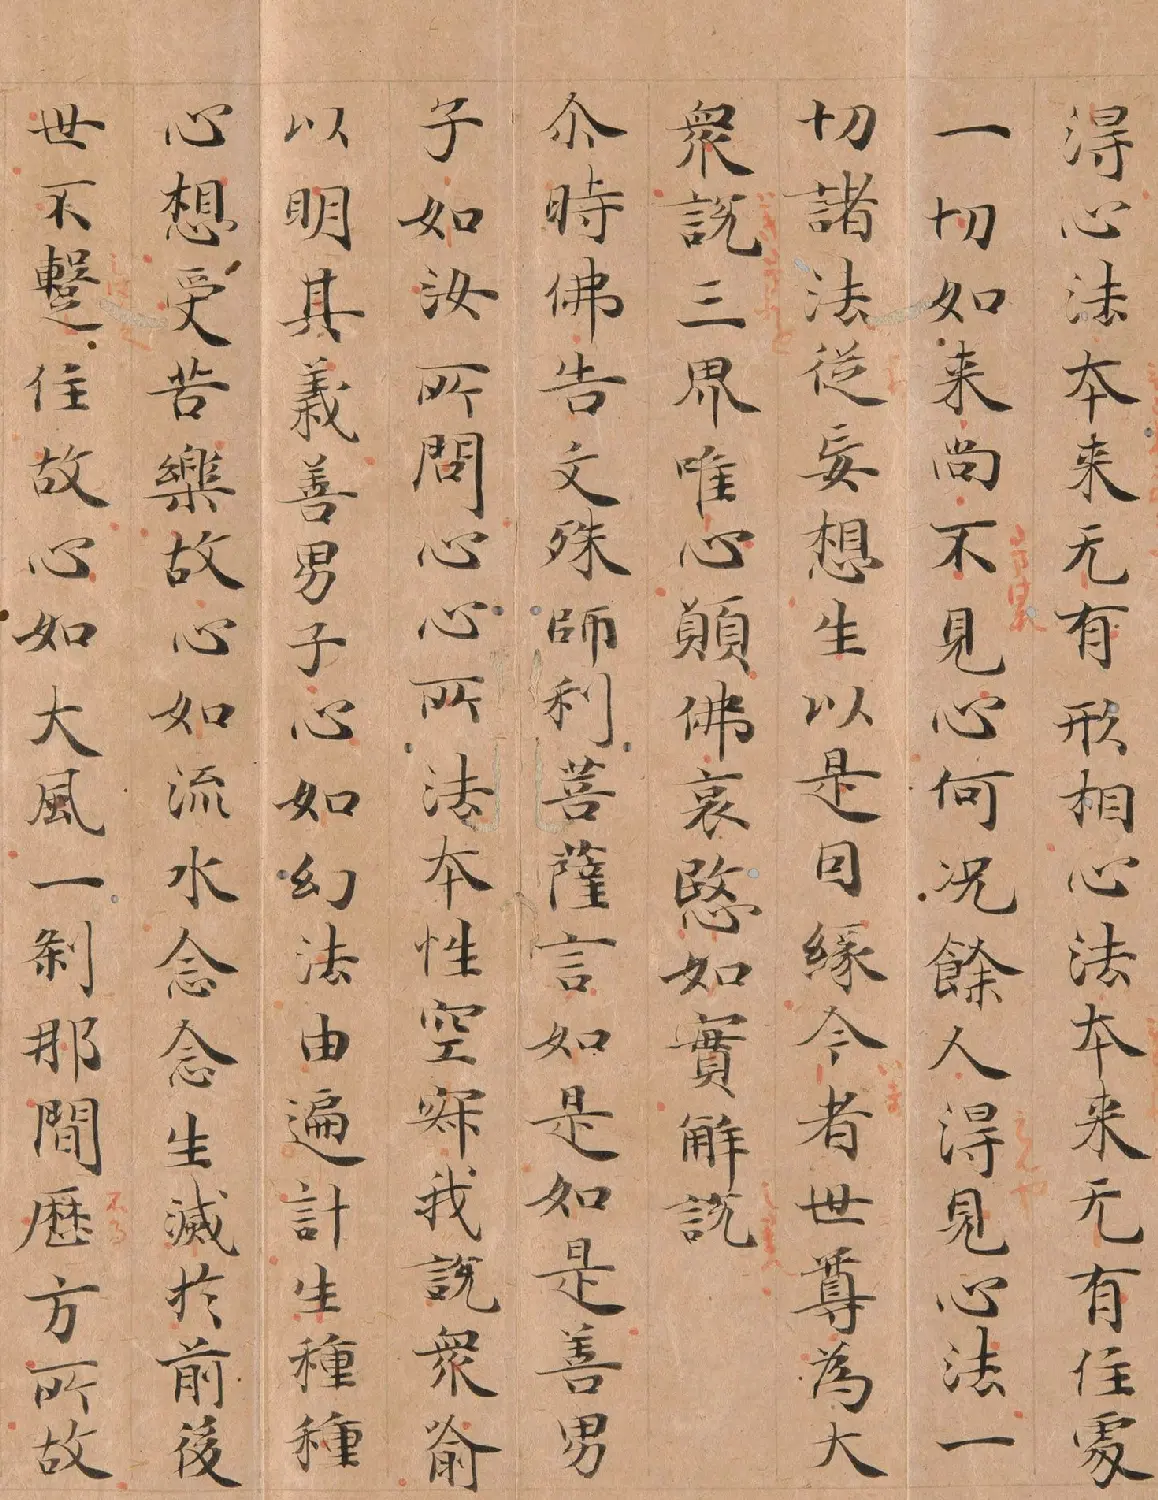 得心法本来无有形相心法本来无有住處
一切如来尚不見心何况餘人得見心法一
切諸法從妄想生以是因緣今者世尊為大
衆說三界唯心願佛哀愍如實解說
尒時佛告文殊師利菩薩言如是如是善男
子如汝所問心心所法本性空寂我說衆喻
以明其義善男子心如幻法由遍計生種種
心想受苦樂故心如流水念念生滅於前後
世不蹔住故心如大風一刹那間歷方所故